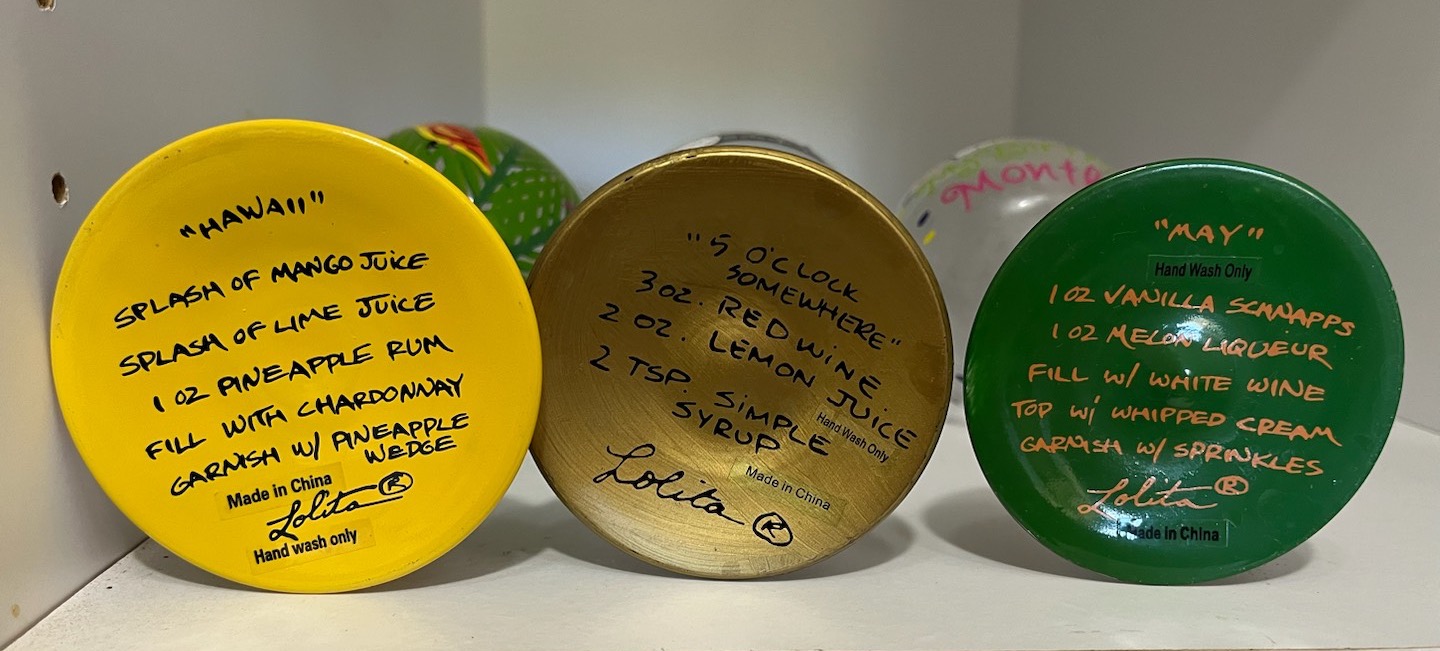 "HAWAII"
SPLASH OF MANGO JUICE
SPLASH OF LIME JUICE
1 OZ PINEAPPLE RUM
FILL WITH CHARDONNAY
GARNISH W/ PINEAPPLE
WEDGE
Made in China
Lolita®
Hand wash only
"5 O'CLOCK
SOMEWHERE"
3 OZ. RED WINE
2 OZ. LEMON JUICE
2 TSP. SIMPLE
SYRUP
Hand Wash Only
Made in China
Lolita ®
Mont
"MAY"
Hand Wash Only
1 OZ VANILLA SCHNAPPS
1 OZ MELON LIQUEUR
FILL W/ WHITE WINE
TOP W/ WHIPPED CREAM
GARNISH W/ SPRINKLES
Lolita®
Made in China